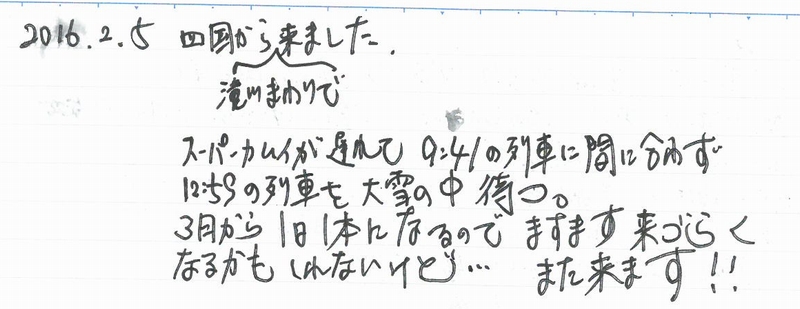 2016.2.5 四国から来ました.
滝川まわりで
スーパーカムイが遅れて 9:41の列車に間に合わず
12:59の列車を大雪の中待つ。
3月から1日1本になるので ますます来づらく
なるかもしれないけど… また来ます!!